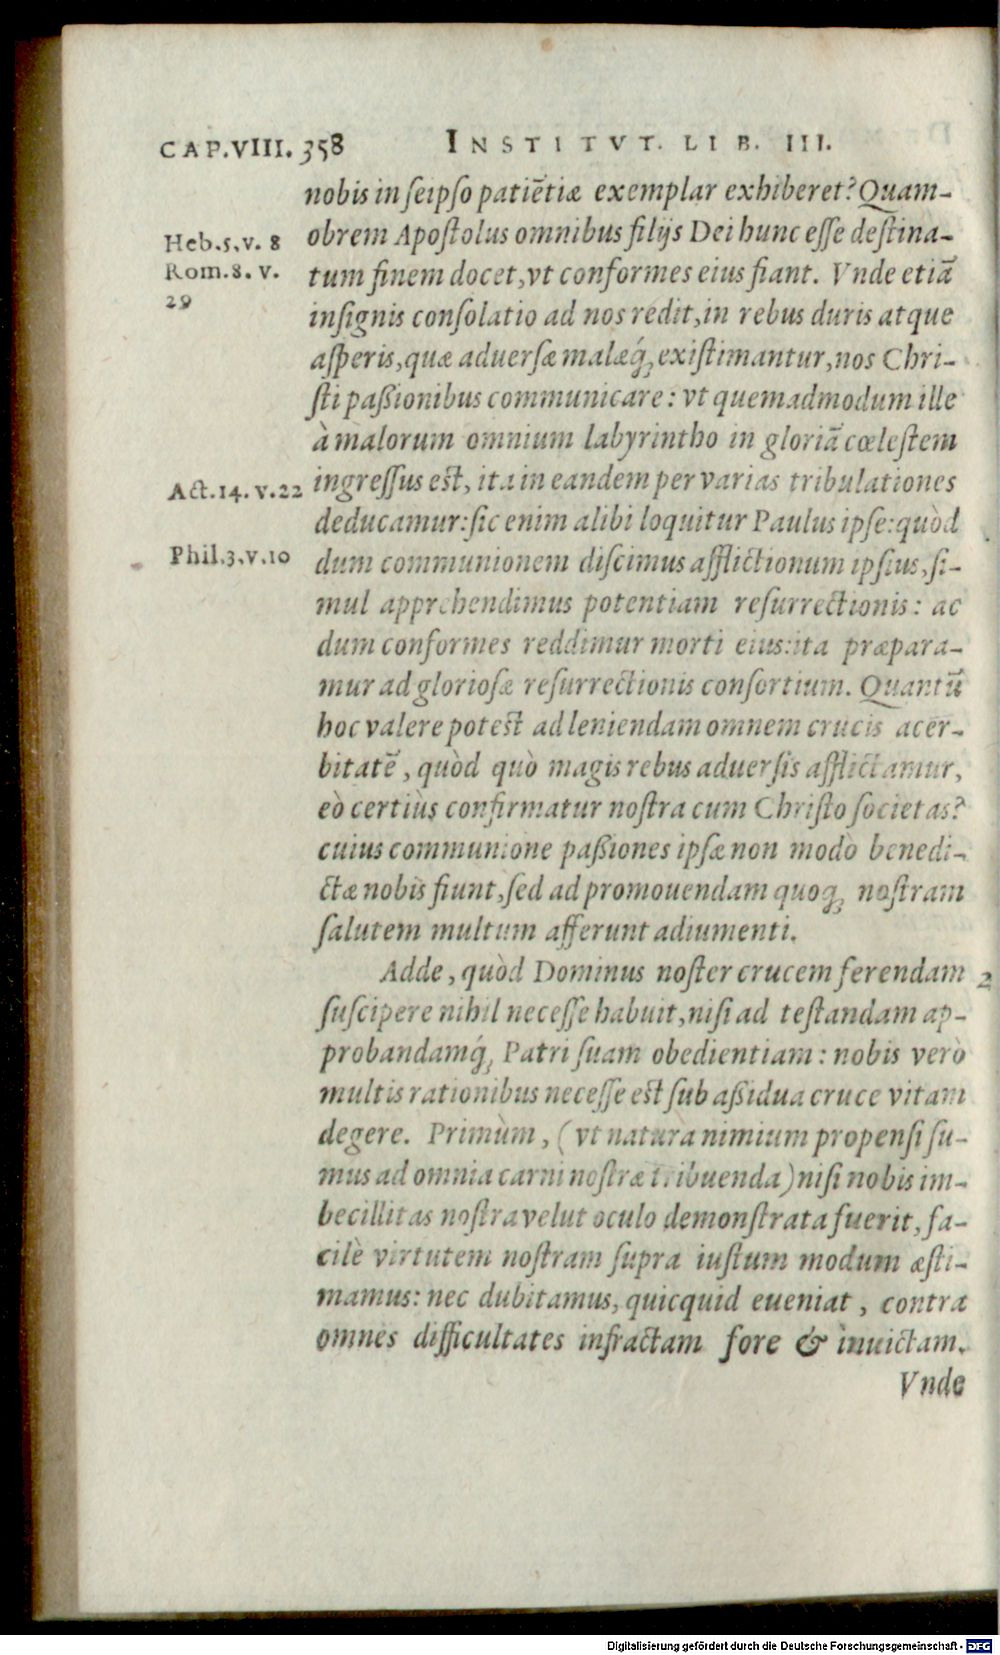 CAP.VIII. 358 INSTITVT. LIB. III.
nobis in ſeipſo patiẽtiæ exemplar exhiberet? Quam-
Heb.5.v. 8
obrem Apoſtolus omnibus filijs Dei hunc eſſe deſtina-
Rom.8. v.
29
tum finem docet, vt conformes eius fiant. Vnde etiã
inſignis conſolatio ad nos redit, in rebus duris atque
aſperis, quæ aduerſæ malæq́; exiſtimantur, nos Chri-
ſti paßionibus communicare: vt quemadmodum ille
à malorum omnium labyrintho in gloriã cœleſtem
Act.14. v.22
ingreſſus eſt, ita in eandem per varias tribulationes
deducamur: ſic enim alibi loquitur Paulus ipſe: quòd
Phil.3.v.10
dum communionem diſcimus afflictionum ipſius, ſi-
mul apprehendimus potentiam reſurrectionis: ac
dum conformes reddimur morti eius: ita præpara-
mur ad glorioſæ reſurrectionis conſortium. Quantũ
hoc valere poteſt ad leniendam omnem crucis acer-
bitatẽ, quòd quò magis rebus aduerſis afflictamur,
eò certiùs confirmatur noſtra cum Chriſto ſocietas?
cuius communione paßiones ipſæ non modò benedi-
ctæ nobis fiunt, ſed ad promouendam quoq; noſtram
ſalutem multum afferunt adiumenti.
Adde, quòd Dominus noſter crucem ferendam 2
ſuſcipere nihil neceſſe habuit, niſi ad teſtandam ap-
probandamq́; Patri ſuam obedientiam: nobis verò
multis rationibus neceſſe eſt ſub aßidua cruce vitam
degere. Primùm, (vt natura nimium propenſi ſu-
mus ad omnia carni noſtræ tribuenda) niſi nobis im-
becillitas noſtra velut oculo demonſtrata fuerit, fa-
cilè virtutem noſtram ſupra iuſtum modum æſti-
mamus: nec dubitamus, quicquid eueniat, contra
omnes difficultates infractam fore & inuictam.
Vnde
Digitalisierung gefördert durch die Deutsche Forschungsgemeinschaft - DFG